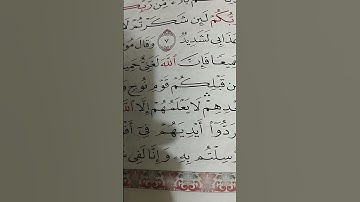 بَلَآءٌ مِّن رَّبِّ
رَبُّكُمْ لَئِن شَكَرْتُمْ لَأَ
عَذَابِى لَشَدِيدٌ ٧ وَقَالَ مُو
جَمِيعًا فَإِنَّ ٱللَّهَ لَغَنِىٌّ حَمِي
مِن قَبْلِكُمْ قَوْمِ نُوحٍ وَ
بَعْدِهِمْ لَا يَعْلَمُهُمْ إِلَّا ٱللَّه
فَرَدُّوٓا۟ أَيْدِيَهُمْ فِىٓ أَفْ
أُرْسِلْتُم بِهِۦ وَإِنَّا لَفِى شَ